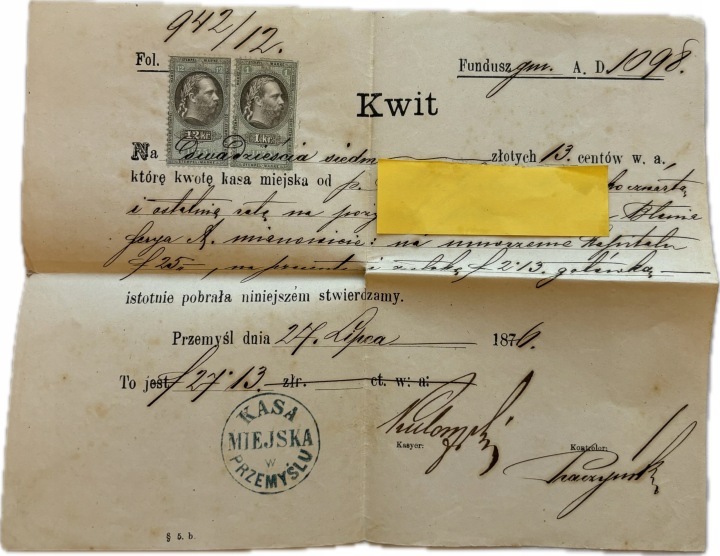 942/12.
Fol.
Fundusz gm. A. D. 1098.
STEMPEL MARKE STEMPEL MARKE
12 Kr. 1 Kr.
Kwit
Na Dwadzieścia siedm złotych 13. centów w. a.
którę kwotę kasa miejska od p.
i ostatnią ratę na
ferya A. mianowicie: na umorzenie kapitału
f 25 , na procent i zwłokę f 2·13. gotówką
istotnie pobrała niniejszém stwierdzamy.
Przemyśl dnia 27. Lipca 1876.
To jest f 27·13 złr. ct. w: a:
KASA
MIEJSKA
W
PRZEMYŚLU
Kasyer: Kontrolor:
§ 5. b.